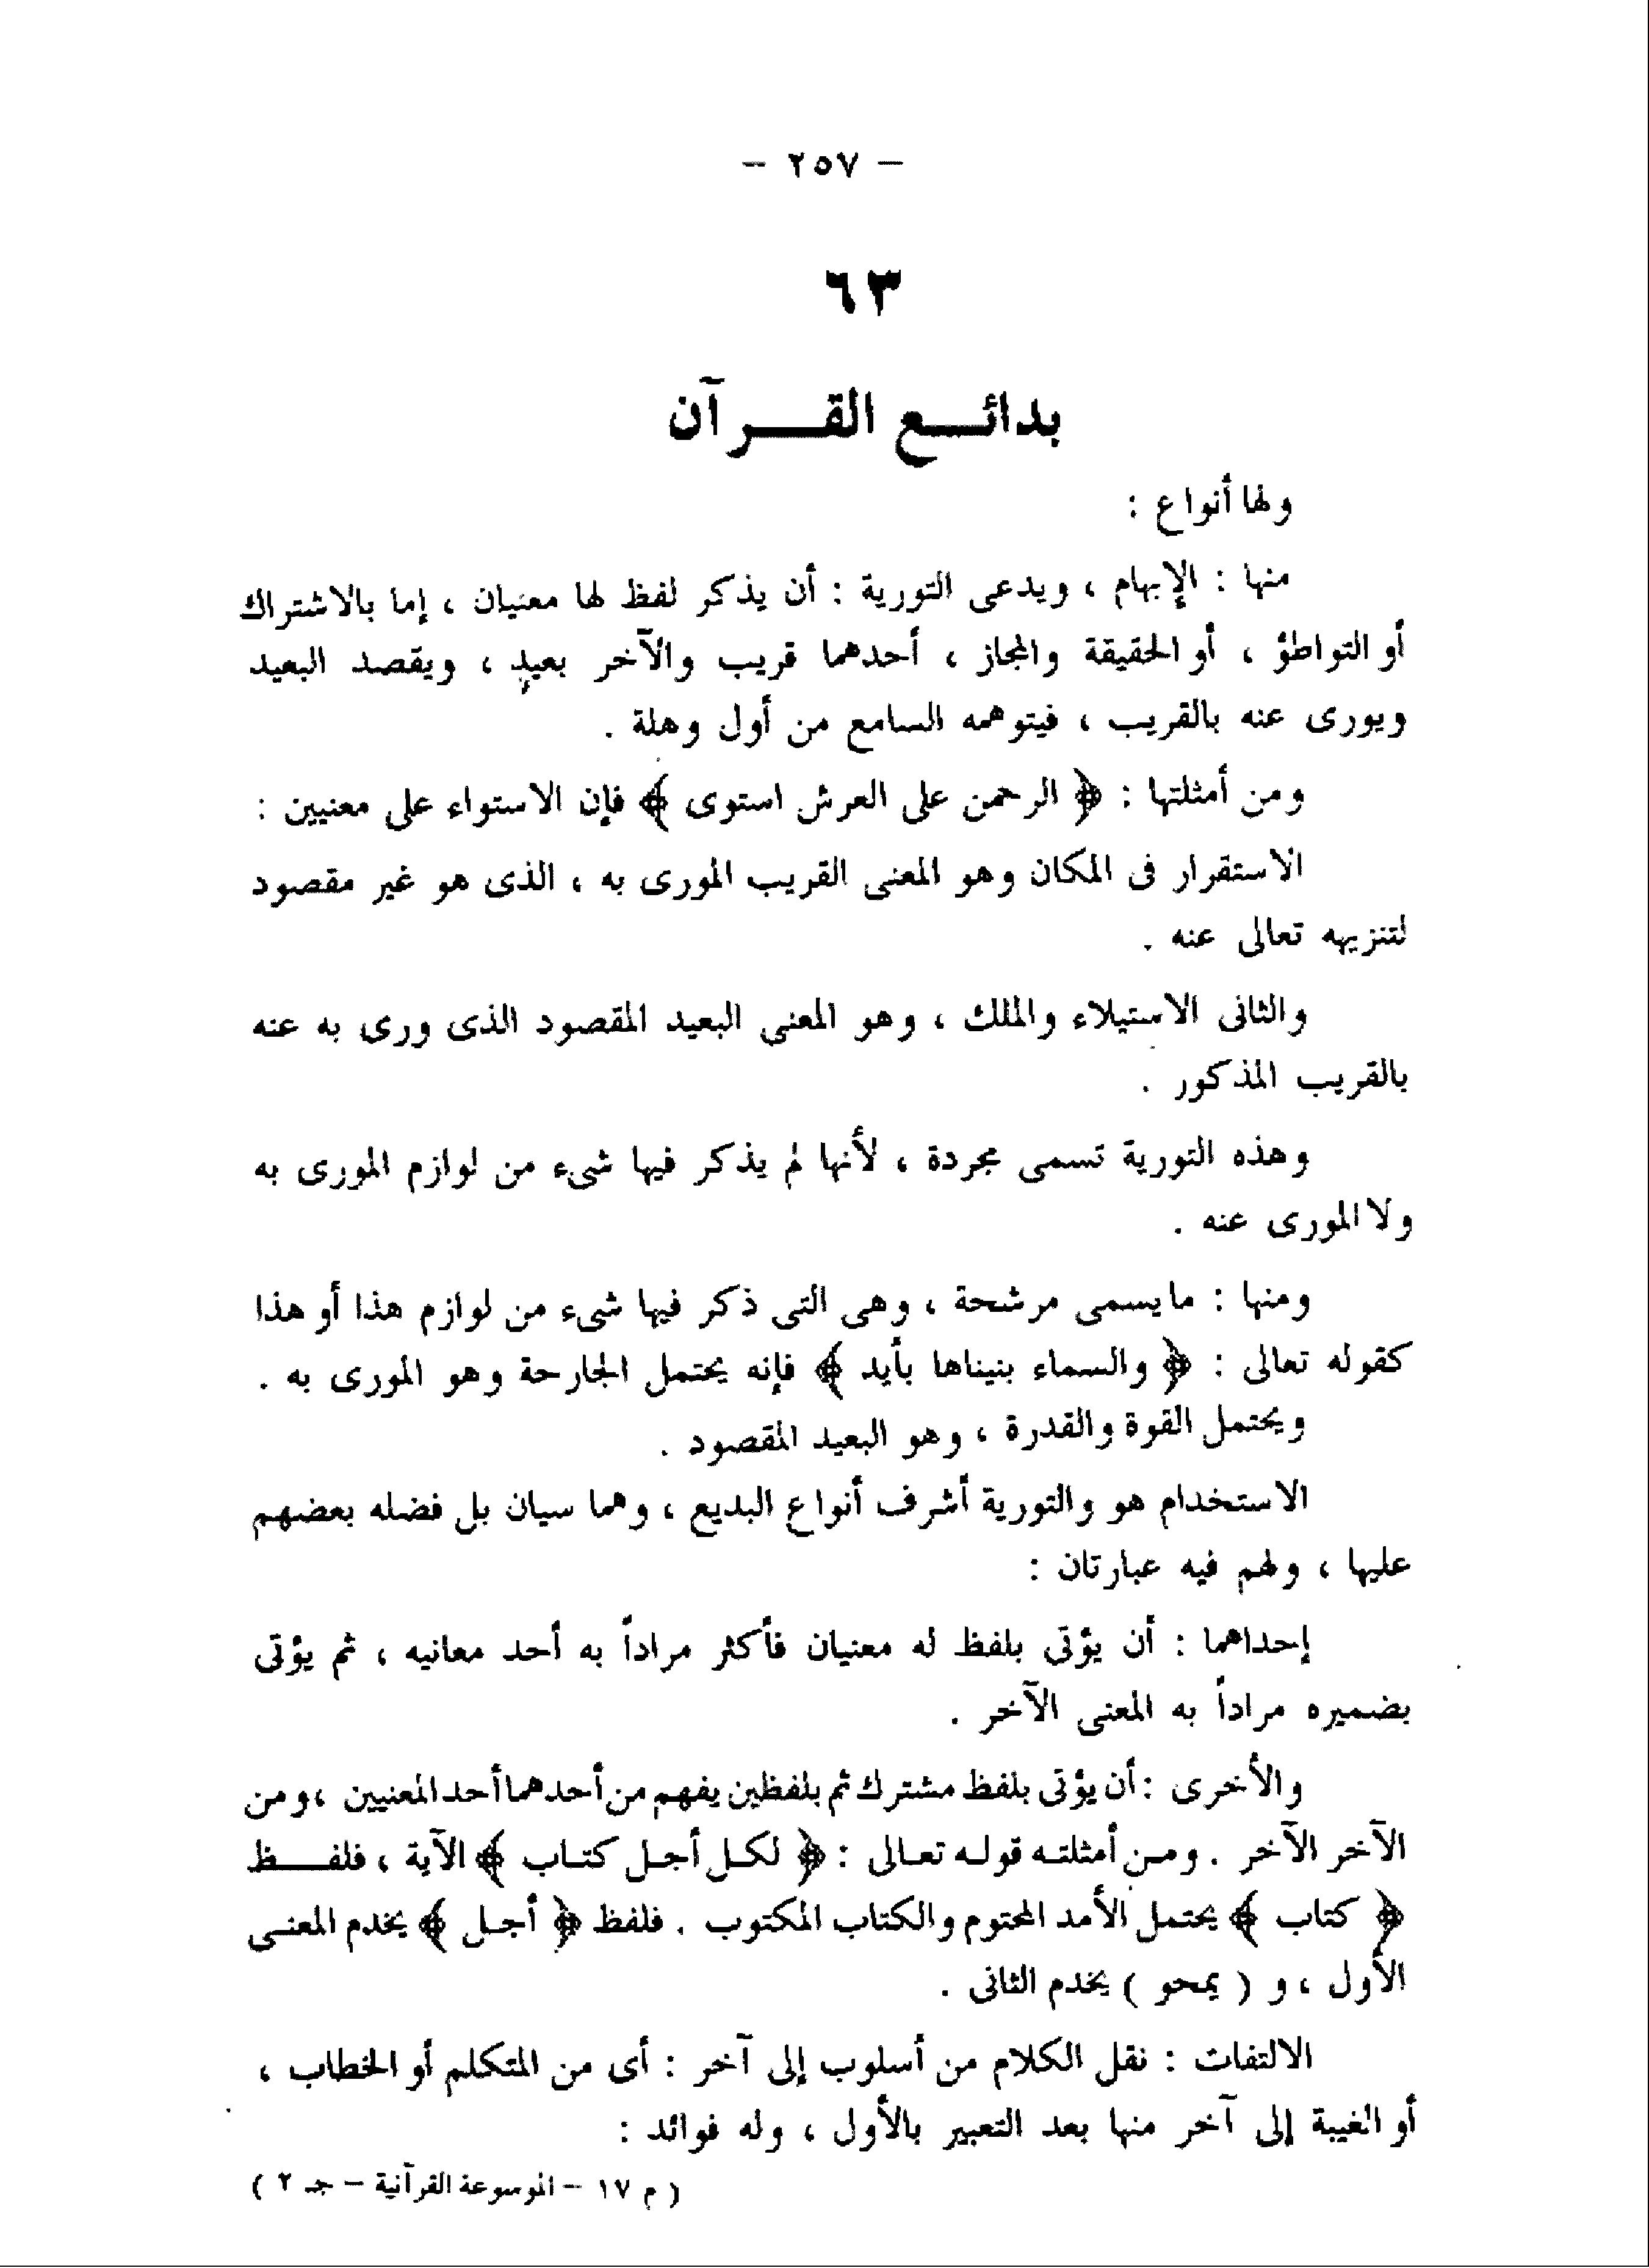 – ٢٥٧ –
٦٣
بدائع القرآن
ولها أنواع :
منها : الإبهام ، ويدعى التورية : أن يذكر لفظ لها معنيان ، إما بالاشتراك
أو التواطؤ ، أو الحقيقة والمجاز ، أحدهما قريب والآخر بعيد ، ويقصد البعيد
ويورى عنه بالقريب ، فيتوهمه السامع من أول وهلة .
ومن أمثلتها : ﴿ الرحمن على العرش استوى ﴾ فإن الاستواء على معنيين :
الاستقرار فى المكان وهو المعنى القريب المورى به ، الذى هو غير مقصود
لتنزيهه تعالى عنه .
والثانى الاستيلاء والملك ، وهو المعنى البعيد المقصود الذى ورى به عنه
بالقريب المذكور .
وهذه التورية تسمى مجردة ، لأنها لم يذكر فيها شىء من لوازم المورى به
ولا المورى عنه .
ومنها : ما يسمى مرشحة ، وهى التى ذكر فيها شىء من لوازم هذا أو هذا
كقوله تعالى : ﴿ والسماء بنيناها بأيد ﴾ فإنه يحتمل الجارحة وهو المورى به .
ويحتمل القوة والقدرة ، وهو البعيد المقصود .
الاستخدام هو والتورية أشرف أنواع البديع ، وهما سيان بل فضله بعضهم
عليها ، ولهم فيه عبارتان :
إحداهما : أن يؤتى بلفظ له معنيان فأكثر مراداً به أحد معانيه ، ثم يؤتى
بضميره مراداً به المعنى الآخر .
والأخرى : أن يؤتى بلفظ مشترك ثم بلفظين يفهم من أحدهما أحد المعنيين ، ومن
الآخر الآخر . ومن أمثلته قوله تعالى : ﴿ لكل أجل كتاب ﴾ الآية ، فلفظ
﴿ كتاب ﴾ يحتمل الأمد المحتوم والكتاب المكتوب . فلفظ ﴿ أجل ﴾ يخدم المعنى
الأول ، و ( يمحو ) يخدم الثانى .
الالتفات : نقل الكلام من أسلوب إلى آخر : أى من المتكلم أو الخطاب ،
أو الغيبة إلى آخر منها بعد التعبير بالأول ، وله فوائد :
( م ١٧ – الموسوعة القرآنية – جـ ٢ )